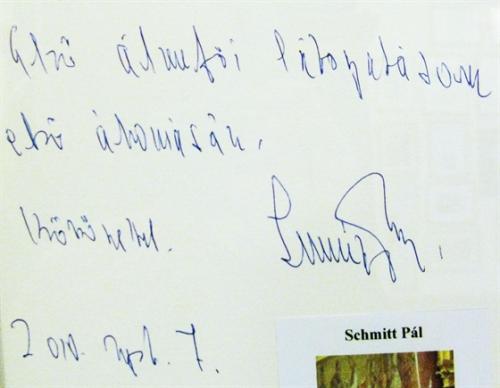 Első államfői látogatásom
első állomásán.
Köszönettel.
2010. szept. 7.
Schmitt Pál